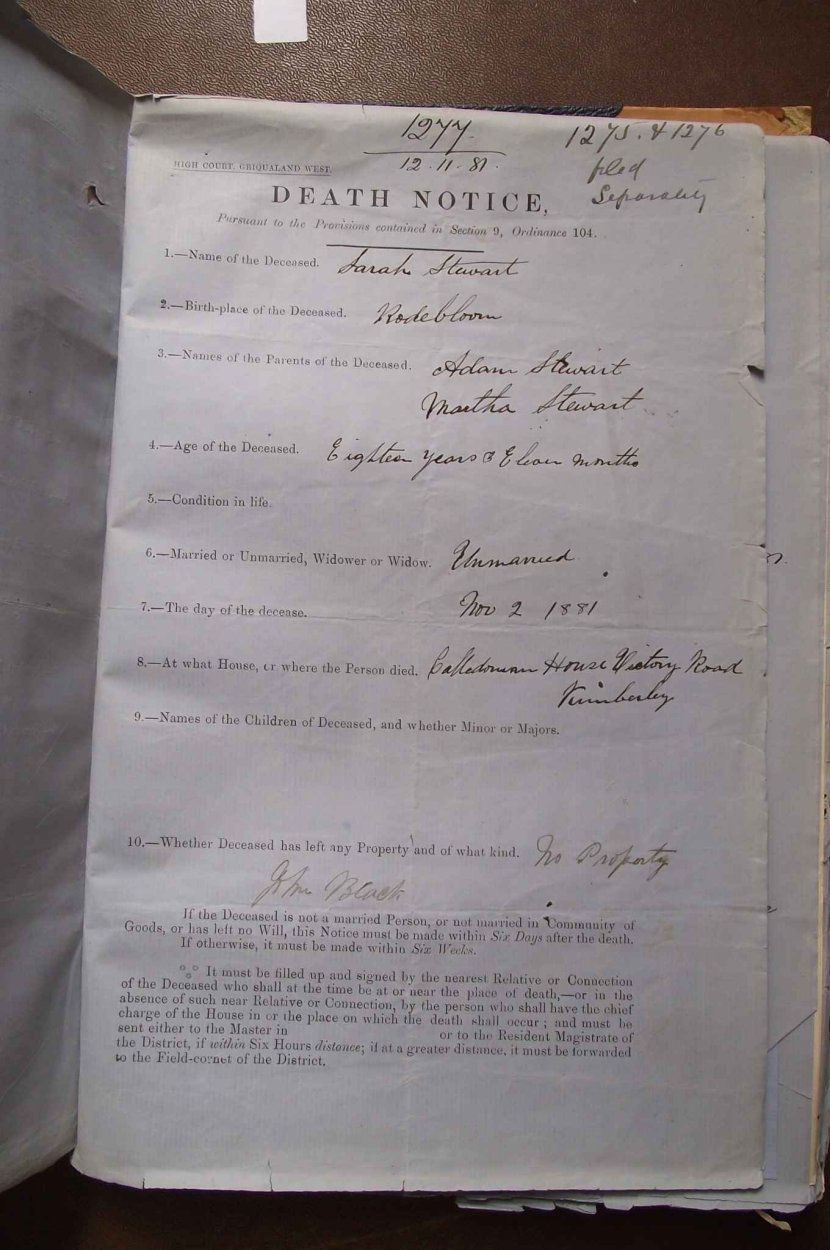 1277.
1275. & 1276
12.11.81.
filed
Separately
HIGH COURT, GRIQUALAND WEST.
DEATH NOTICE,
Pursuant to the Provisions contained in Section 9, Ordinance 104.
1.—Name of the Deceased. Sarah Stewart
2.—Birth-place of the Deceased. Rodebloom
3.—Names of the Parents of the Deceased. Adam Stewart
Martha Stewart
4.—Age of the Deceased. Eighteen years & Eleven months
5.—Condition in life.
6.—Married or Unmarried, Widower or Widow. Unmarried
7.—The day of the decease. Nov 2 1881
8.—At what House, or where the Person died. Calledonian House Victory Road
Kimberley
9.—Names of the Children of Deceased, and whether Minor or Majors.
10.—Whether Deceased has left any Property and of what kind. No Property
John Black
If the Deceased is not a married Person, or not married in Community of
Goods, or has left no Will, this Notice must be made within Six Days after the death.
If otherwise, it must be made within Six Weeks.
It must be filled up and signed by the nearest Relative or Connection
of the Deceased who shall at the time be at or near the place of death,—or in the
absence of such near Relative or Connection, by the person who shall have the chief
charge of the House in or the place on which the death shall occur; and must be
sent either to the Master in or to the Resident Magistrate of
the District, if within Six Hours distance; if at a greater distance, it must be forwarded
to the Field-cornet of the District.